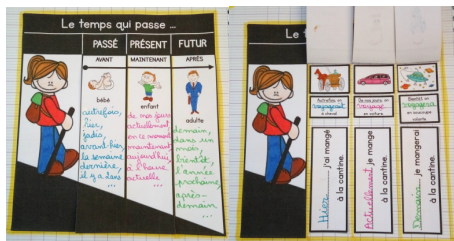 Le temps qui passe ...
PASSÉ
PRÉSENT
FUTUR
AVANT
MAINTENANT
APRÈS
bébé
enfant
adulte
autrefois,
hier,
jadis,
avant-hier,
la semaine
dernière,
il y a 2 ans
...
de nos jours
actuellement
en ce moment
maintenant
aujourd'hui,
à l'heure
actuelle
...
demain,
dans un
mois,
bientôt,
l'année
prochaine,
après-
demain
...
Le t
Autrefois on
voyageait
à cheval
De nos jours on
voyage
en voiture
Bientôt on
voyagera
en soucoupe
volante
Hier j'ai mangé
à la cantine.
Actuellement je mange
à la cantine.
Demain je mangerai
à la cantine.